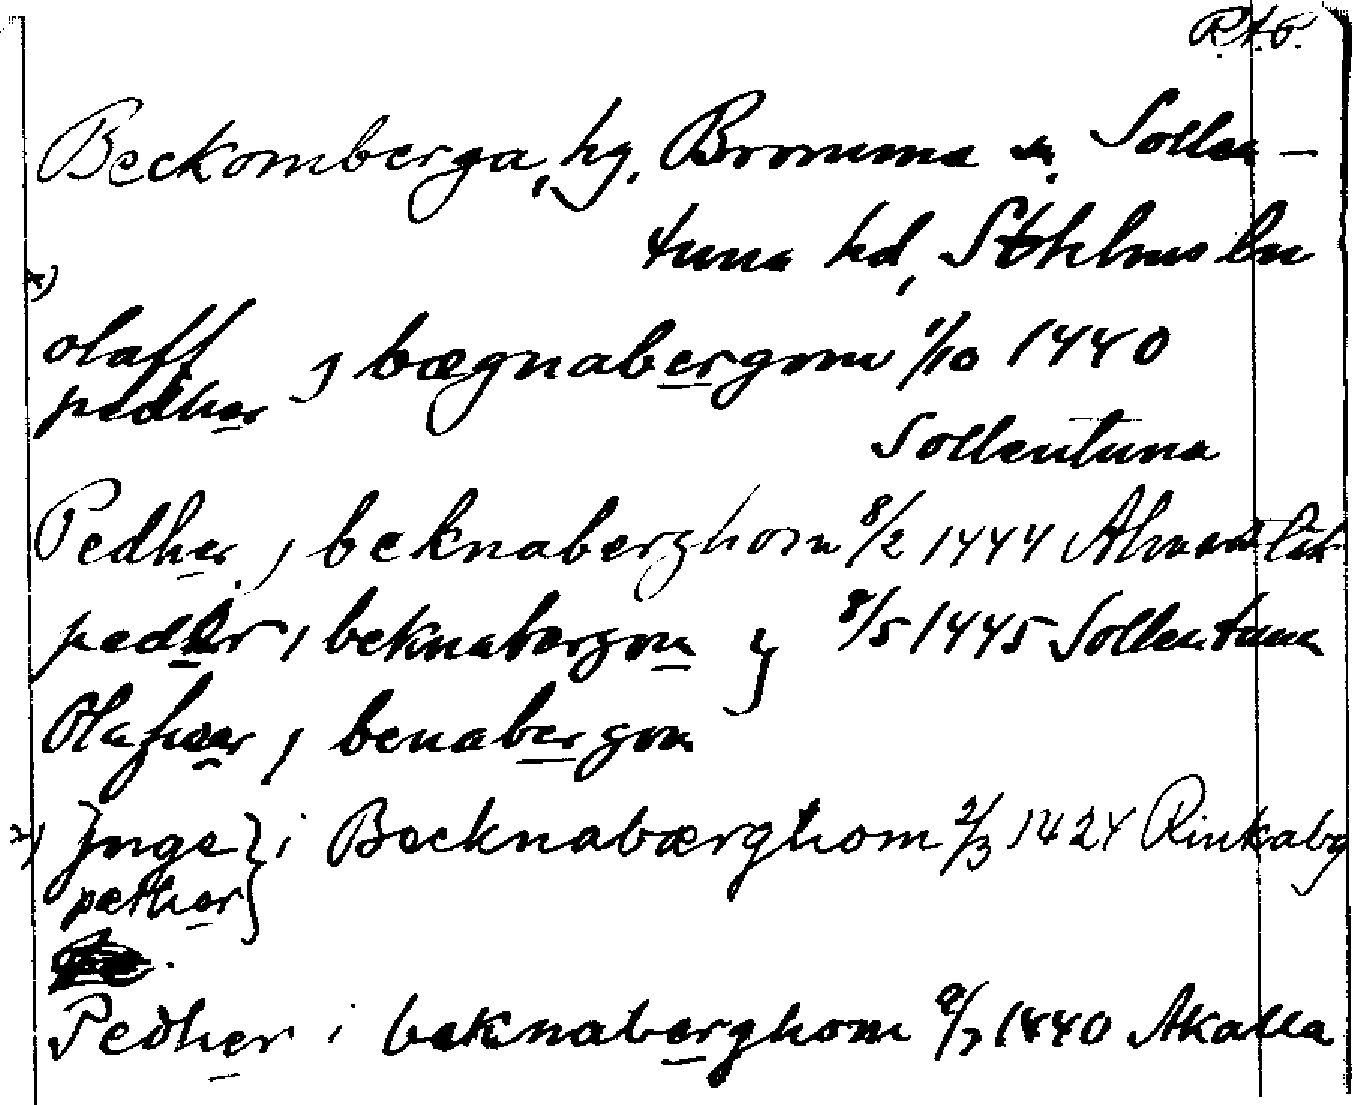 R.A.P.
Beckomberga, hg. Bromma sn. Sollen-
tuna hd, Sthlms län
olaff
pedher j bægnabergom 1/10 1440
Sollentuna
Pedher j beknaberghom 8/2 1444
pedhr j beknabergom 8/5 1445 Sollentuna
Olafwer j benabergom
2) Jnge
pæther } i Becknabærghom 2/3 1424 Rinkaby
Pedher i beknaberghom 9/7 1440 Akalla